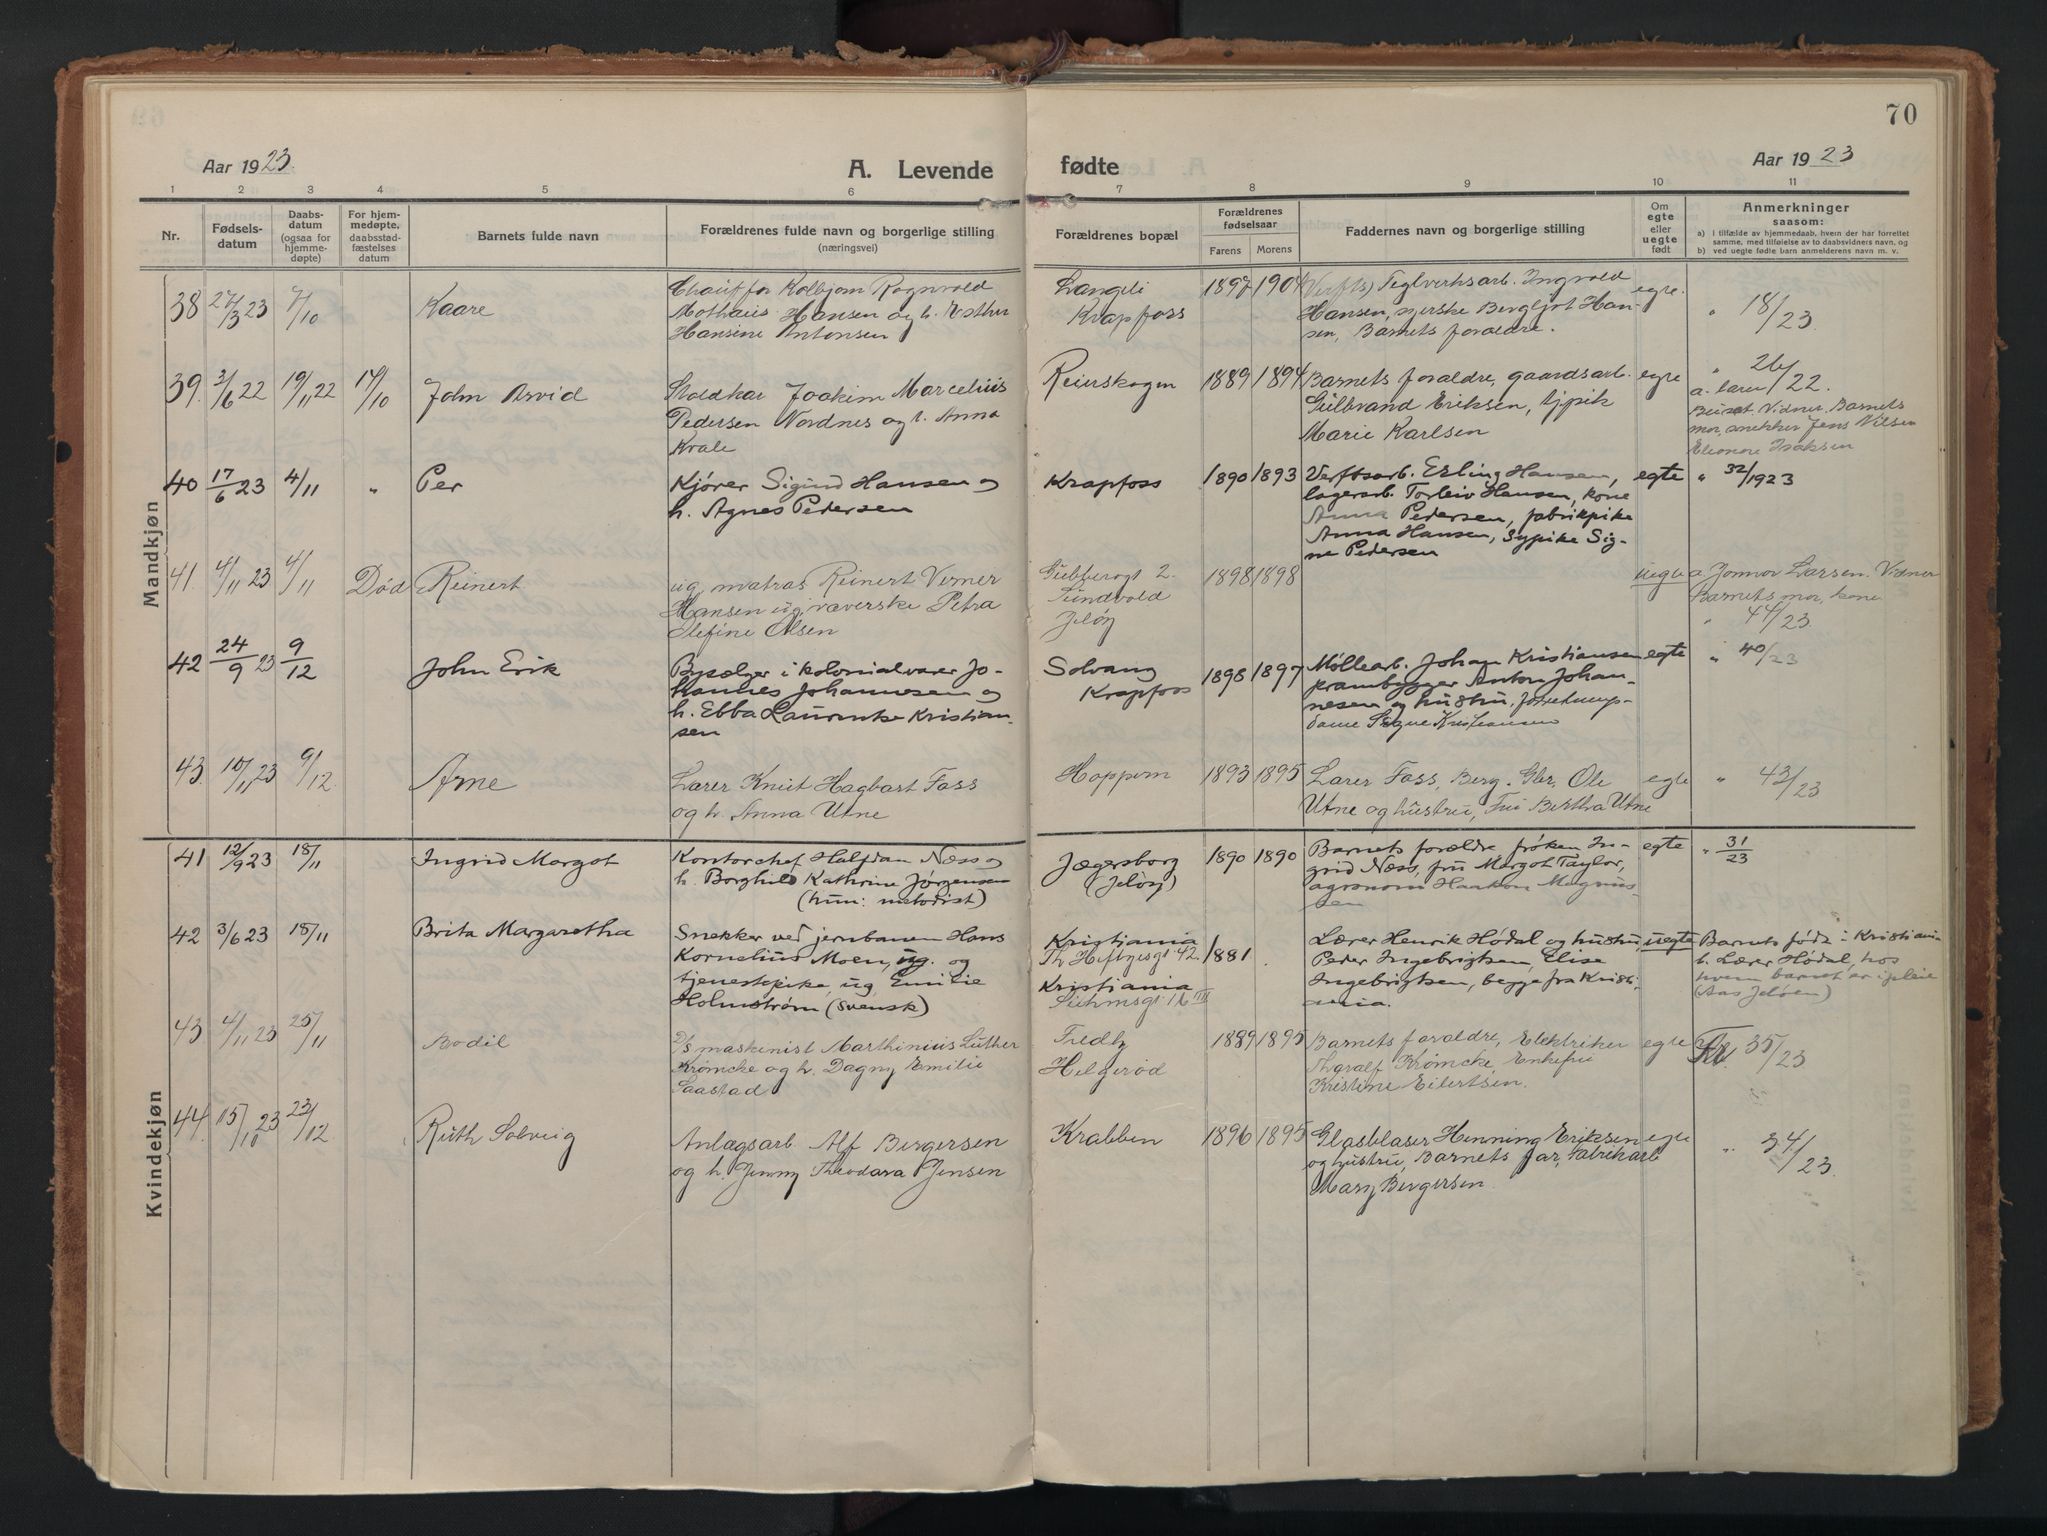 70
Aar 1923
A. Levende
fødte
Aar 1923
1 2 3 4 5 6 7 8 9 10 11
Nr.
Fødsels-
datum
Daabs-
datum
(ogsaa for
hjemme-
døpte)
For hjem-
medøpte,
daabsstad-
fæstelses
datum
Barnets fulde navn
Forældrenes fulde navn og borgerlige stilling
(næringsvei)
Forældrenes bopæl
Forældrenes
fødselsaar
Farens Morens
Faddernes navn og borgerlige stilling
Om
egte
eller
uegte
født
Anmerkninger
saasom:
a) i tilfælde av hjemmedaab, hvem der har forrettet
samme, med tilføielse av to daabsvidners navn, og
b) ved uegte fødte barn anmelderens navn m. v.
Mandkjøn
38 27/3 23 7/10
Kaare
Chauffør Kolbjørn Ragnvald
Mathæus Hansen og h. Esther
Hansine Antonsen
Langli
Krapfoss
1897 1904
Verfts) Teglverksarb. Ingvald
Hansen, syerske Bergljot Han-
sen, Barnets forældre.
egte
" 18/23
39. 3/6 22 19/11 22 14/10
John Arvid
Stoldkar Joakim Marcelius
Pedersen Nordnes og h. Anna
Kvale
Reierskogen
1889 1894
Barnets forældre, gaardsarb.
Gulbrand Eriksen, tjpik
Marie Karlsen
egte
" 26/22.
a. lærer
Vidner, Barnets
mor, snekker Jens Nilsen
Eleonore Isaksen
40 17/6 23 4/11 "
Per
Kjører Sigurd Hansen og
h. Agnes Pedersen
Krapfoss
1890 1893
Verftsarb. Erling Hansen,
lagerarb. Torleiv Hansen, kone
Anna Pedersen, fabrikpike
Anna Hansen, sypike Sig-
ne Pedersen
egte
" 32/1923
41 4/11 23 4/11 Død
Reinert
ug. matros Reinert Verner
Hansen ug. væverske Petra
Stefine Olsen
Gubberogt 2.
Sundvold
Jeløy
1898 1898
uegte
a. Jonmor Larsen. Vidner
Barnets mor, kone
" 44/23.
42 24/9 23 9/12
John Erik
Bysælger i kolonialvarer Jo-
hannes Johannesen og
h. Ebba Laurentse Kristian-
sen
Solvang
Krapfoss
1898 1897
Møllearb. Johan Kristiansen
prambygger Anton Johan-
nesen og hustru, forretnings-
dame Signe Kristiansen
egte
" 40/23
43. 10/11 23 9/12
Arne
Lærer Knut Hagbart Fass
og h. Anna Utne
Hoppern
1893 1895
Lærer Fass, Berg. Gbr. Ole
Utne og hustru, Fru Bertha Utne
egte
" 43/23
Kvindekjøn
41 12/9 23 18/11
Ingrid Margot
Kontorchef Halfdan Næss og
h. Borghild Kathrine Jørgensen
(hun: metodist)
Jægersborg
(Jeløy)
1890 1890
Barnets forældre, frøken In-
grid Næss, fru Margot Taylor,
agronom Haakon Magnus-
sen
egte
" 31/23
42 3/6 23 18/11
Brita Margaretha
Snekker ved jernbanen Hans
Kornelius Moen, ug. og
tjenestepike ug Emilie
Holmstrøm (svensk)
Kristiania
Th. Heftyesgt 42.
Kristiania
Suhmsgt 16 III
1881
Lærer Henrik Hødal og hustru,
Peder Ingebrigtsen, Elise
Ingebrigtsen, begge fra Kristi-
ania.
uegte
Barnets født i Kristiania
b. Lærer Hødal, hos
hvem barnet er i pleie
(Aas Jeløen)
43 4/11 23 25/11
Bodil
D/s maskinist Marthinius Luther
Krømcke og h. Dagny Emilie
Saastad
Fredly
Helgerød
1889 1895
Barnets forældre, Elektriker
Thoralf Krømcke, Enkefru
Kristine Eilertsen.
egte
35/23
44. 15/10 23 23/12
Ruth Solveig
Anlægsarb. Alf Bergersen
og h. Jenny Theodora Jensen
Krabben
1896 1895
Glasblaser Henning Eriksen
og hustru, Barnets far, fabrikarb
Mary Bergersen.
egte
" 34/23.